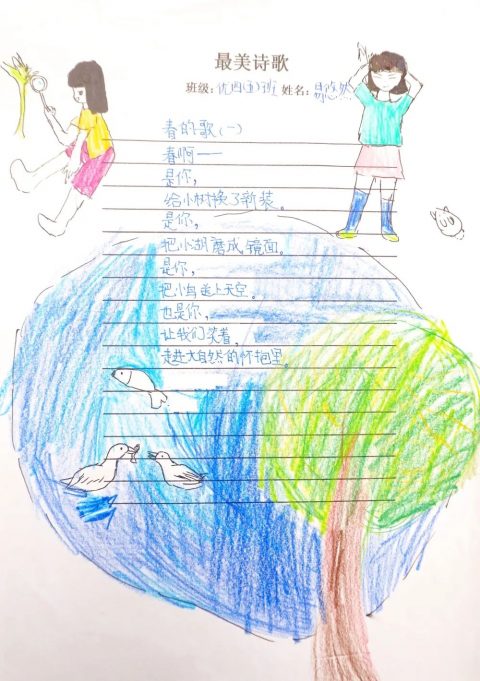 最美诗歌
班级：优四(1)班 姓名：易悠然
春的歌(一)
春啊——
是你，
给小树换了新装。
是你，
把小湖磨成镜面。
是你，
把小鸟送上天空。
也是你，
让我们笑着，
走进大自然的怀抱里。